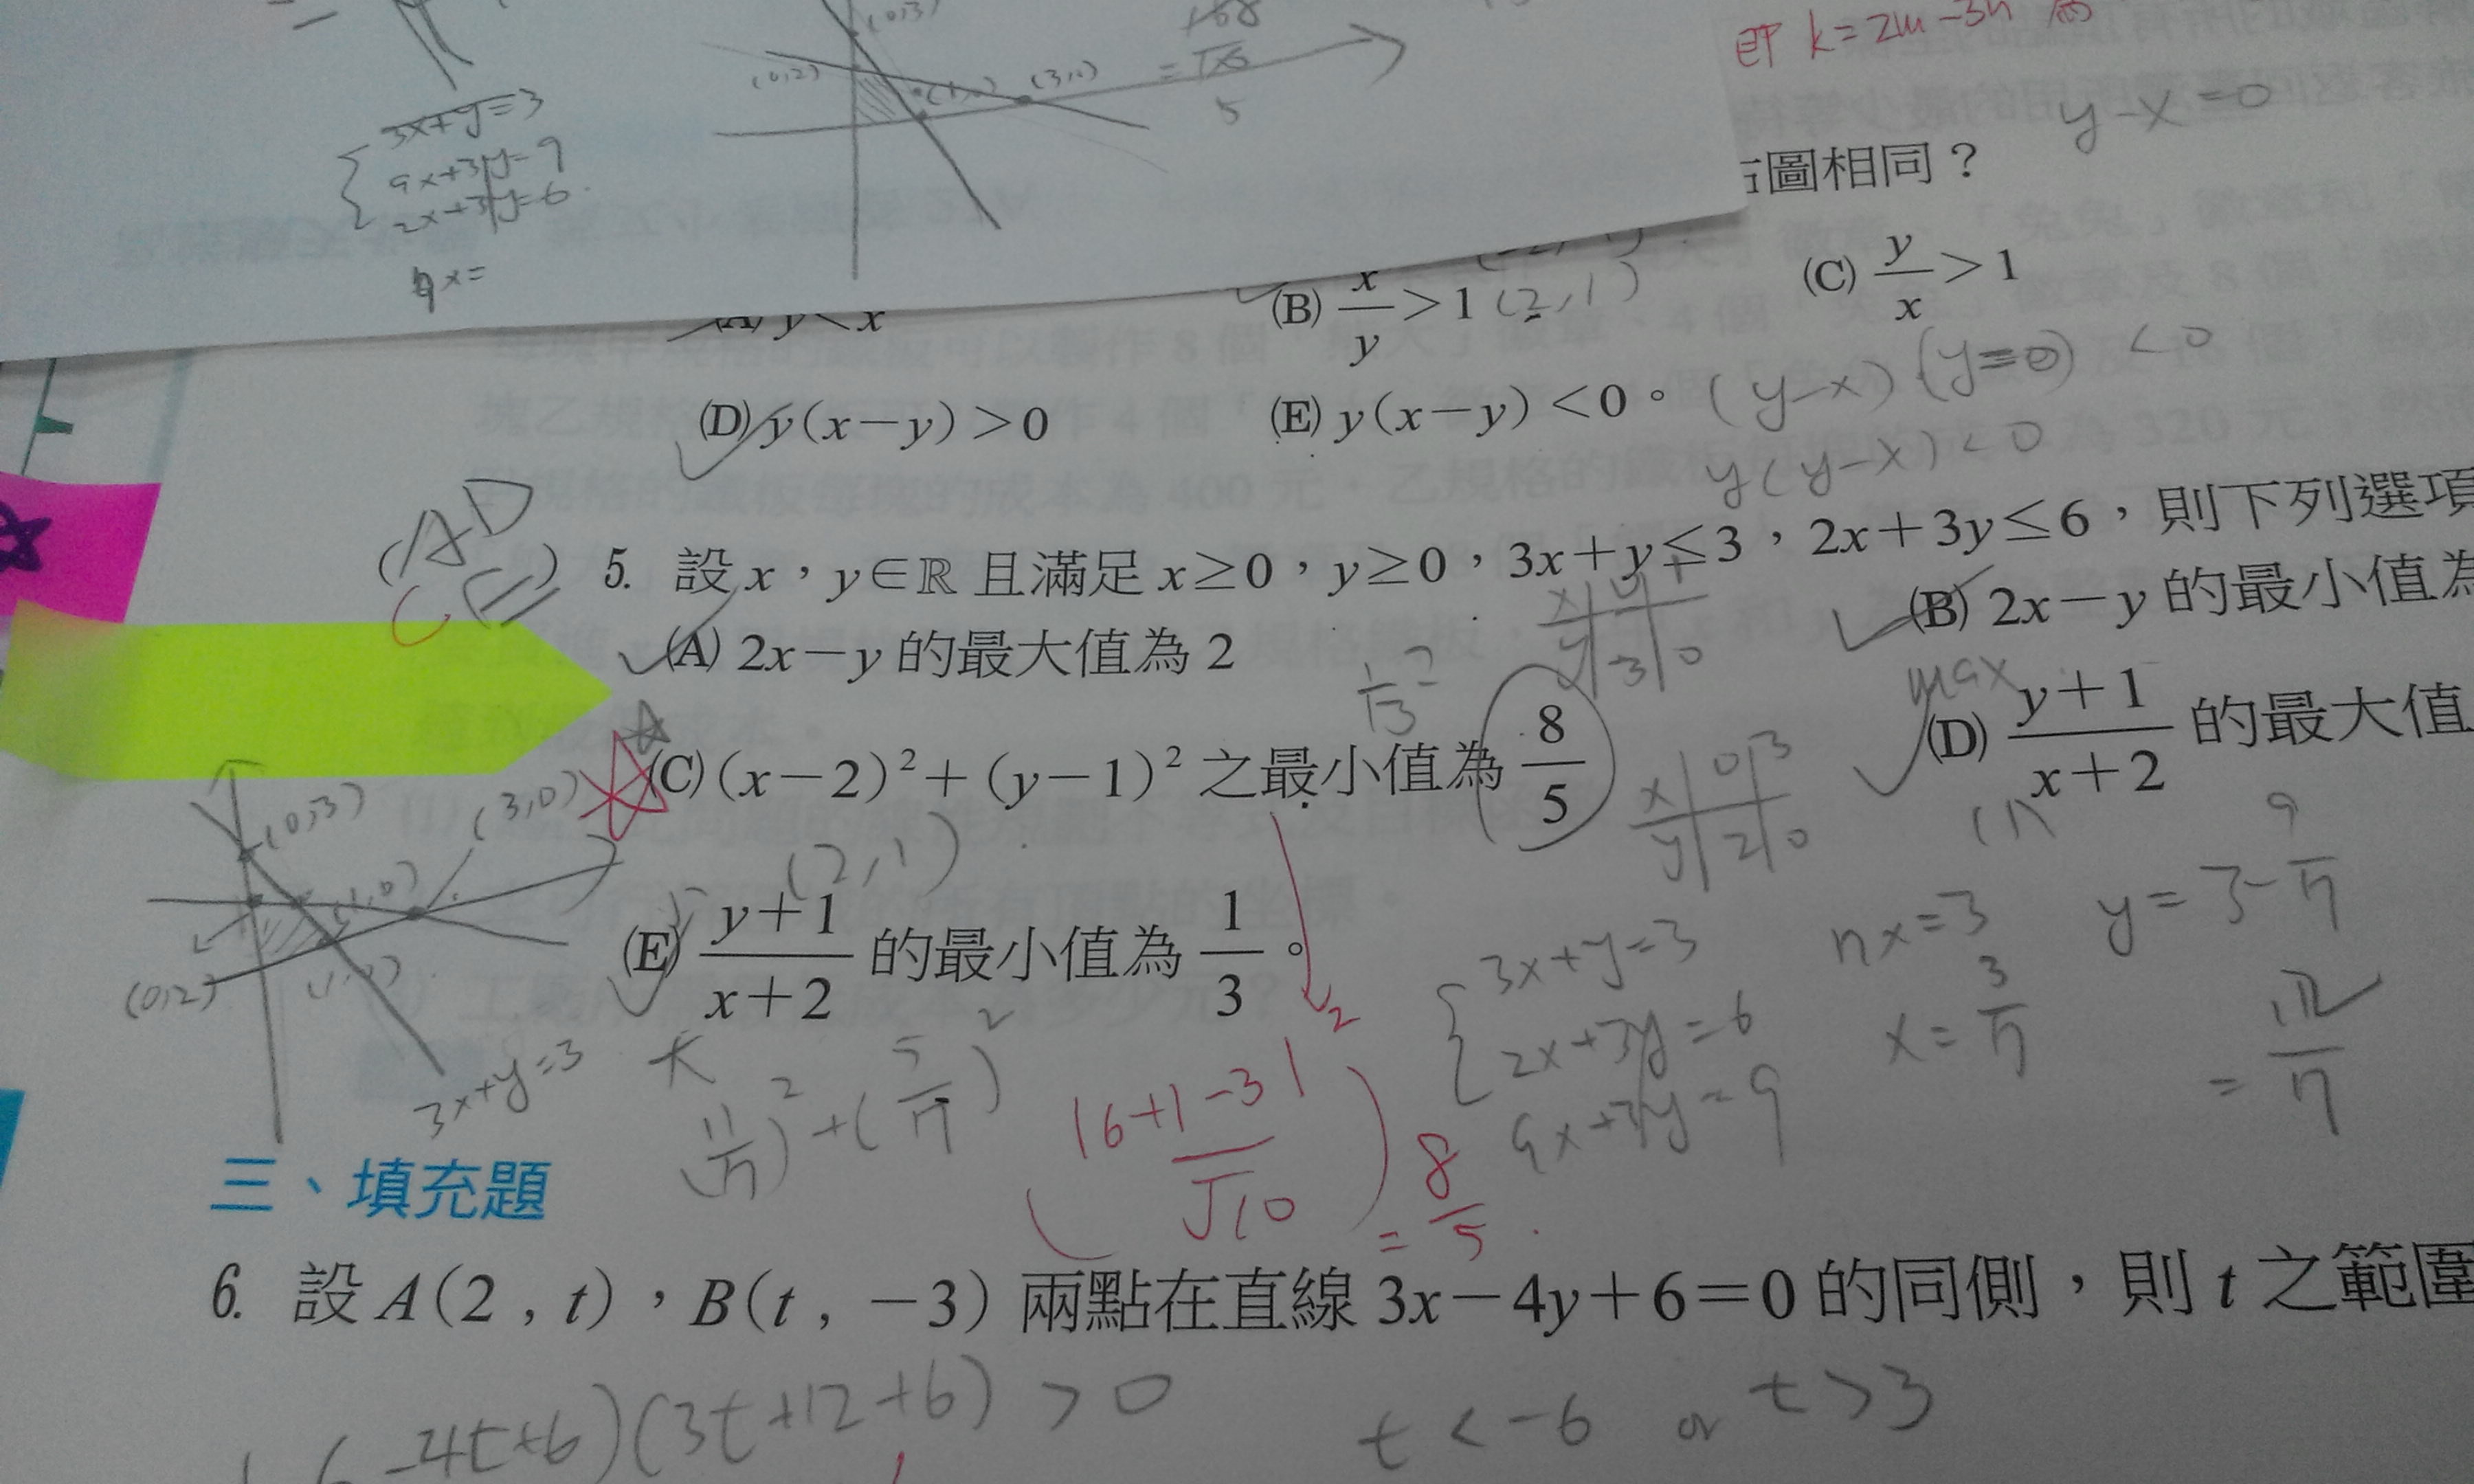 (0,3)
(0,2)
(3,0)
5
3x+y=3
9x+3y=9
2x+3y=6
9x=
即 k=2m-3n
y-x=0
圖相同？
y<x
(B) x/y>1 (2,1)
(C) y/x>1
(D) y(x-y)>0
(E) y(x-y)<0。
(y-x)(y=0) <0
y(y-x)<0
(AD
C E)
5. 設 x，y∈ℝ 且滿足 x≥0，y≥0，3x+y≤3，2x+3y≤6，則下列選項
(A) 2x-y 的最大值為 2
(B) 2x-y 的最小值為
x
y 3 0
max
(C) (x-2)²+(y-1)² 之最小值為 8/5
(D) y+1/x+2 的最大值
x 0 3
y 2 0
(2,1)
(E) y+1/x+2 的最小值為 1/3。
(0,3)
(3,0)
(1,0)
(0,2)
3x+y=3
(11/7)²+(5/7)²
(|6+1-3|/√10)²=8/5
3x+y=3
2x+3y=6
9x+3y=9
7x=3
x=3/7
y=3-9/7
=12/7
三、填充題
6. 設 A(2，t)，B(t，-3) 兩點在直線 3x-4y+6=0 的同側，則 t 之範圍
-4t+6)(3t+12+6)>0
t<-6 or t>3